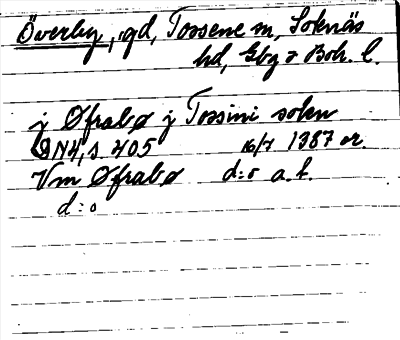 Överby, gd, Tossene sn, Sotenäs
hd, Gbg o Boh. l.
j Øfrabø j Tossini sokn
DN4, s. 405 16/7 1387 or.
Vm Øfrabø d:o a.h.
d:o